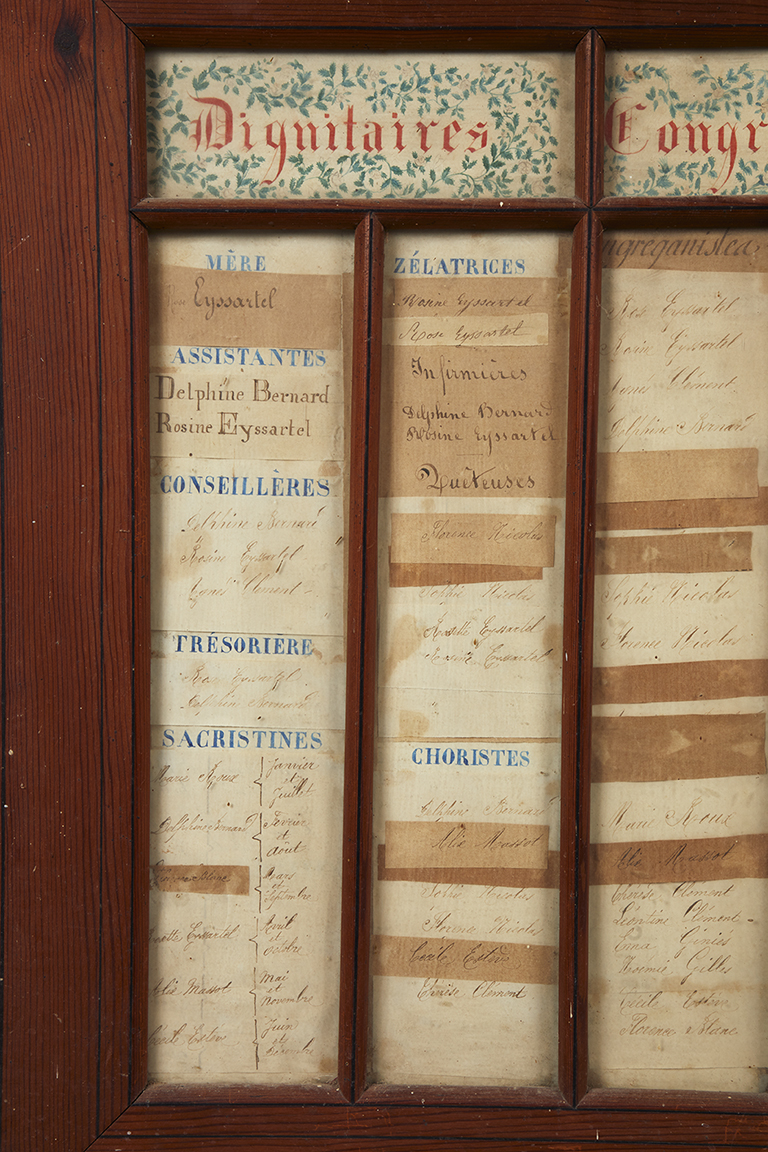 Dignitaires
Congr
MÈRE
Eyssartel
ASSISTANTES
Delphine Bernard
Rosine Eyssartel
CONSEILLÈRES
Delphine Bernard
Rosine Eyssartel
Agnes Clément
TRÉSORIÈRE
Rose Eyssartel
Delphine Bernard
SACRISTINES
Marie Roux { Janvier
et
Juillet
Delphine Bernard { Fevrier
et
Août
Blanc { Mars
et
Septembre
Eyssartel { Avril
et
Octobre
Alix Massot { Mai
et
Novembre
Cécile Estève { Juin
et
Décembre
ZÉLATRICES
Rosine Eyssartel
Rose Eyssartel
Infirmières
Delphine Bernard
Rosine Eyssartel
Quêteuses
Florence Nicolas
Sophie Nicolas
Rosette Eyssartel
Rosette Eyssartel
CHORISTES
Delphine Bernard
Alix Massot
Sophie Nicolas
Florence Nicolas
Cécile Estève
Thérèse Clément
ngréganistes
Rose Eyssartel
Rosine Eyssartel
Agnes Clément
Delphine Bernard
Sophie Nicolas
Florence Nicolas
Marie Roux
Alix Massot
Thérèse Clément
Léontine Clément
Emma Giniés
Noémie Gilles
Cécile Estève
Florence Blanc